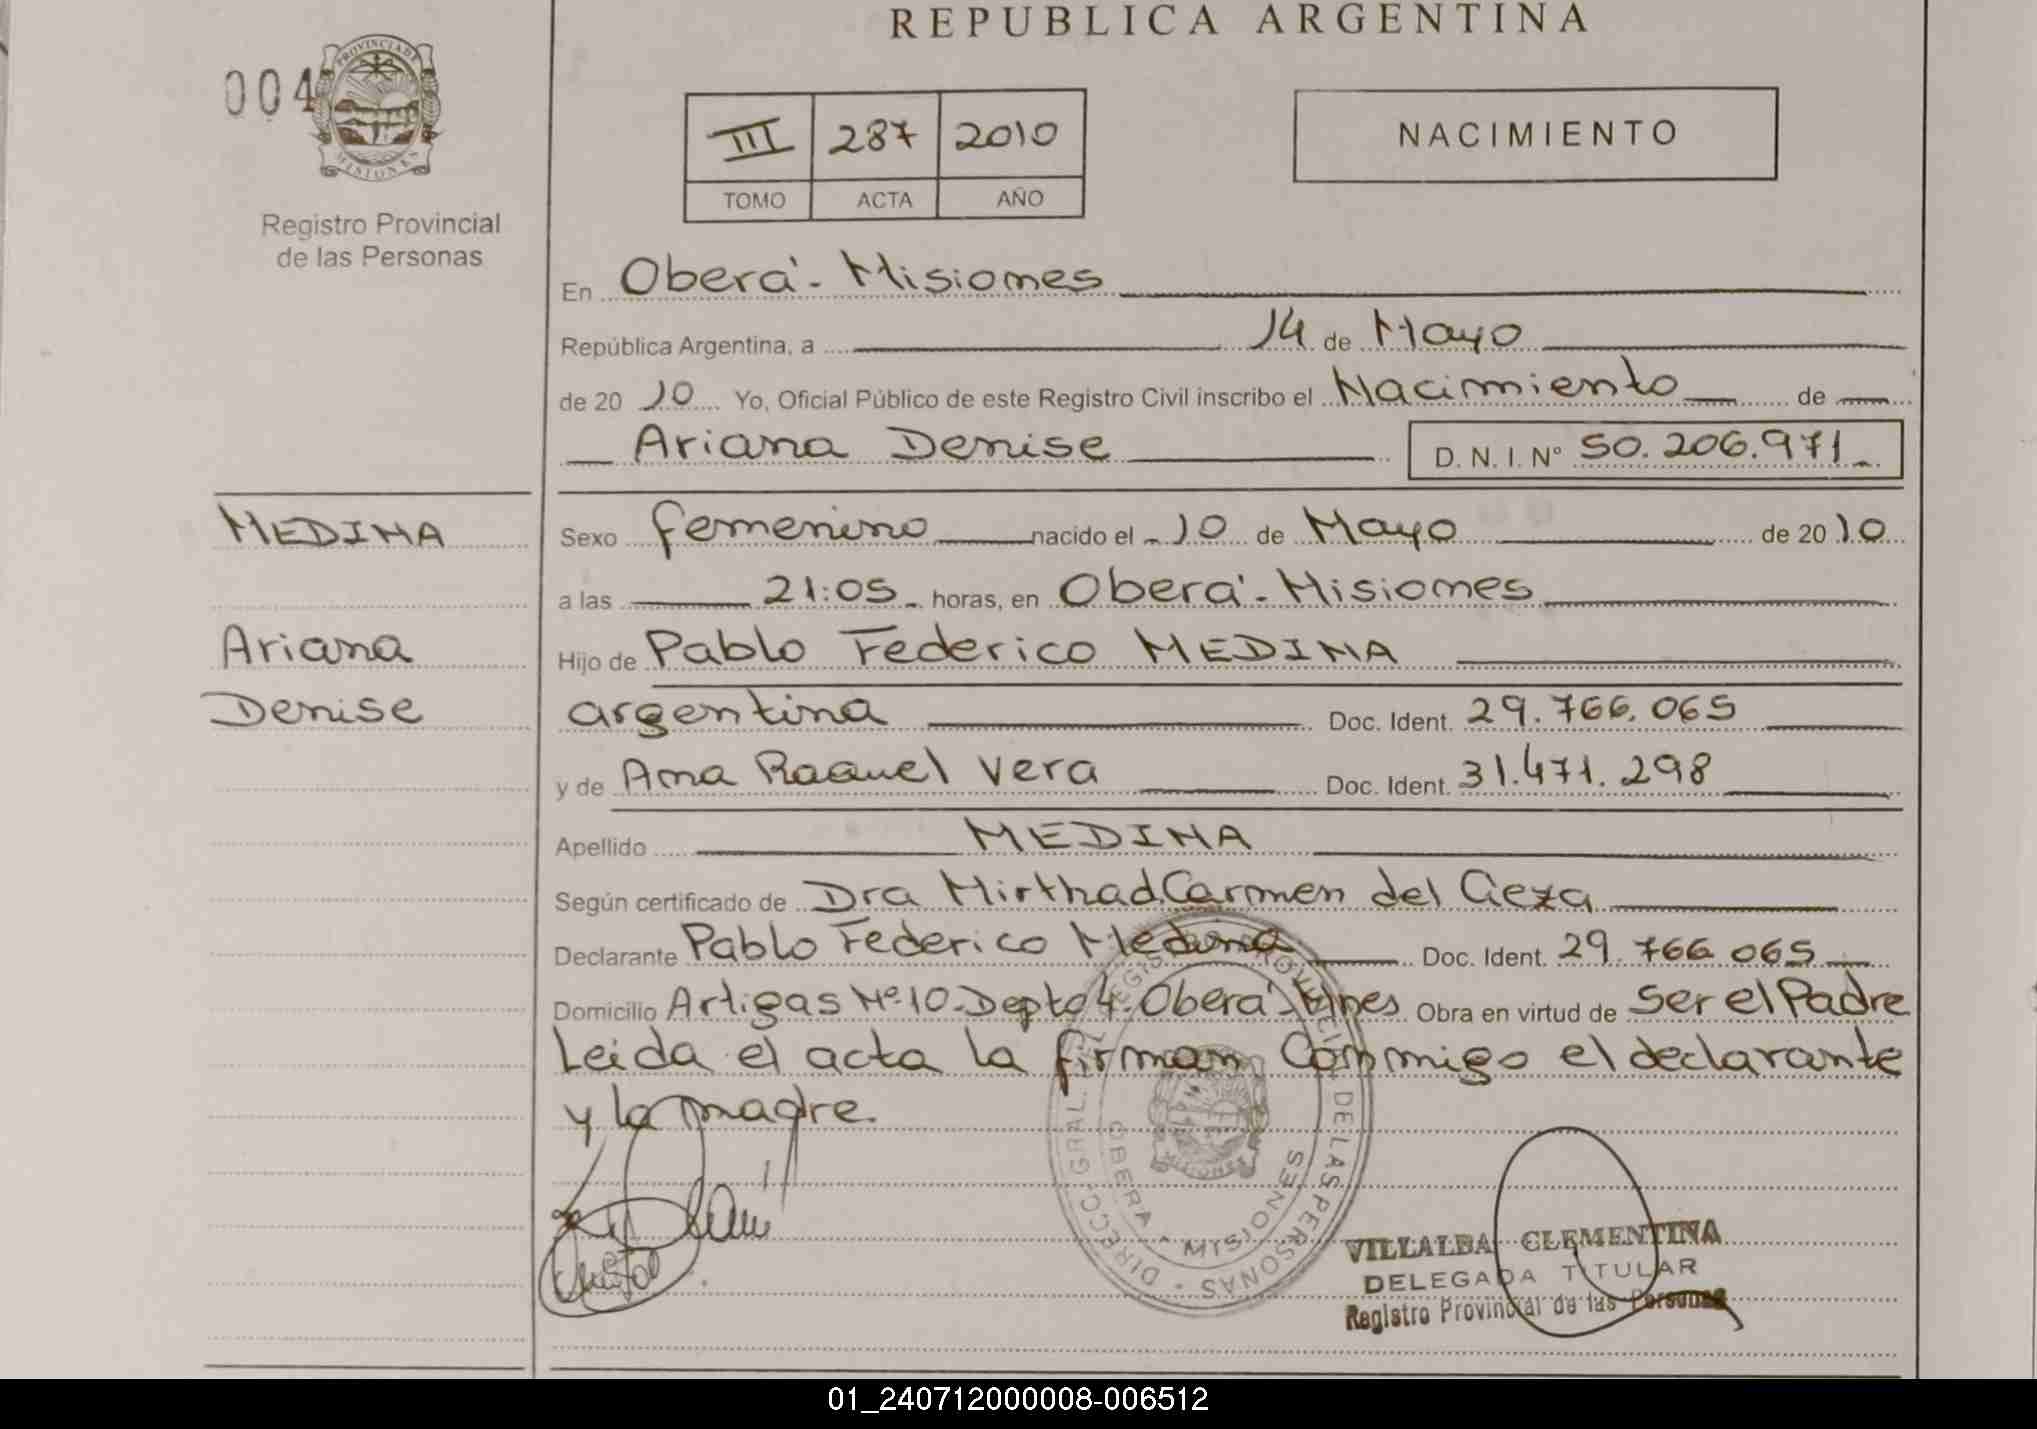 REPUBLICA ARGENTINA
004
PROVINCIA DE
MISIONES
Registro Provincial
de las Personas
III 287 2010
TOMO ACTA AÑO
NACIMIENTO
En Oberá - Misiones
República Argentina, a 14 de Mayo
de 20 10 Yo, Oficial Público de este Registro Civil inscribo el Nacimiento de
Ariana Denise D. N. I. Nº 50.206.971
MEDINA
Ariana
Denise
Sexo femenino nacido el 10 de Mayo de 20 10
a las 21:05 horas, en Oberá - Misiones
Hijo de Pablo Federico MEDINA
argentina Doc. Ident. 29.766.065
y de Ana Raquel Vera Doc. Ident. 31.471.298
Apellido MEDINA
Según certificado de Dra Carmen del
Declarante Pablo Federico Medina Doc. Ident. 29.766.065
Domicilio Artigas Nº 10 - Depto 4 - Oberá - Mnes Obra en virtud de Ser el Padre
Leida el acta la firman Conmigo el declarante
y la madre.
DIRECC. GRAL. DEL REGISTRO PROVINCIAL DE LAS PERSONAS
OBERA - MISIONES
MISIONES
VILLALBA CLEMENTINA
DELEGADA TITULAR
Registro Provincial de las Personas
01_240712000008-006512